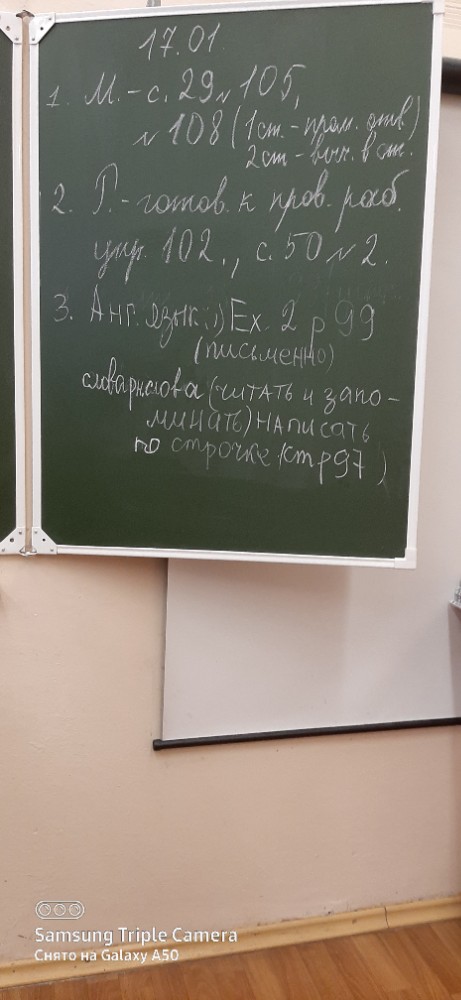 17.01.
1. М.-с. 29 № 105,
№ 108 (1 ст. - пром. отв.)
2 ст - выч. в ст.
2. Р. - готов. к пров. раб.
упр. 102., с. 50 № 2.
3. Анг. язык: 1) Ex. 2 p 99
(письменно)
словарн слова (читать и запо-
минать) написать
по строчке (стр 97)
Samsung Triple Camera
Снято на Galaxy A50